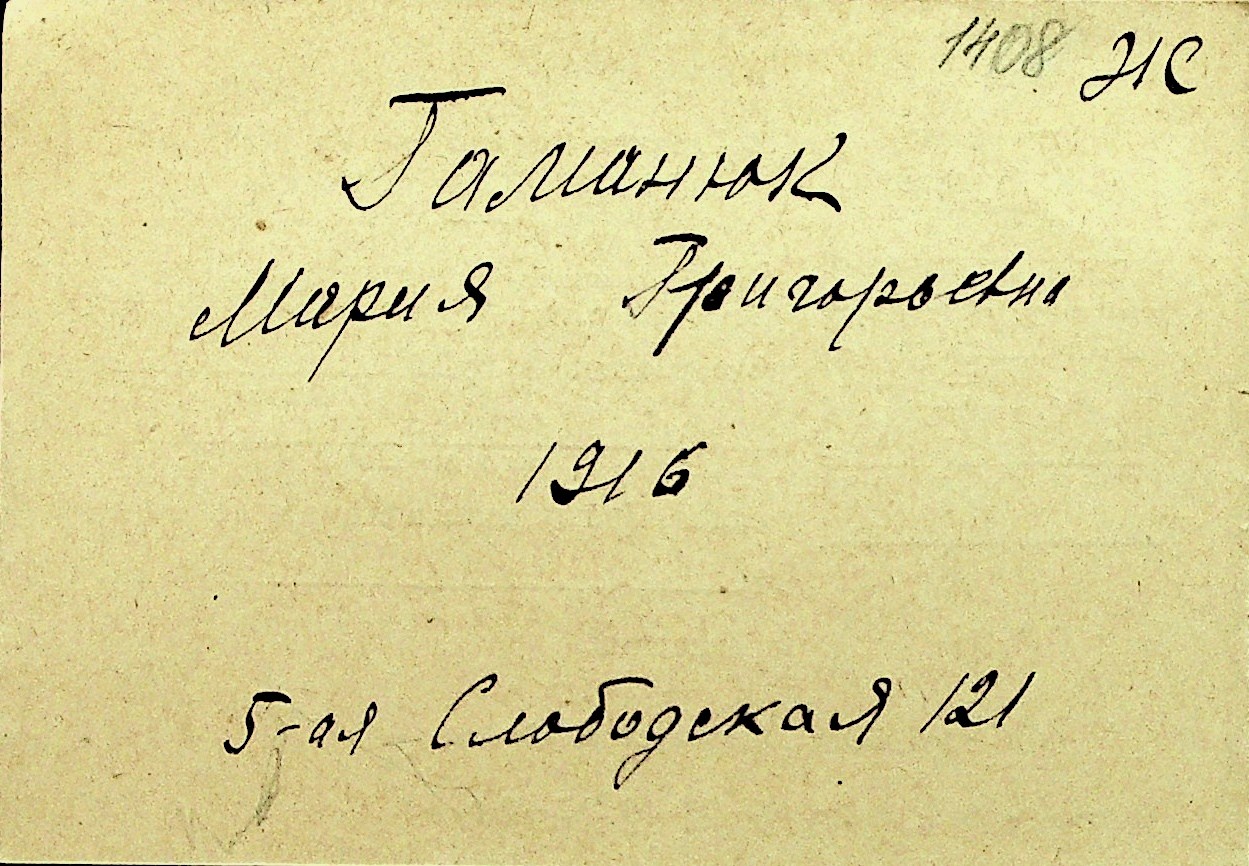 1408 ЖС
Гаманюк
Мария Григорьевна
1916
5-ая Слободская 121